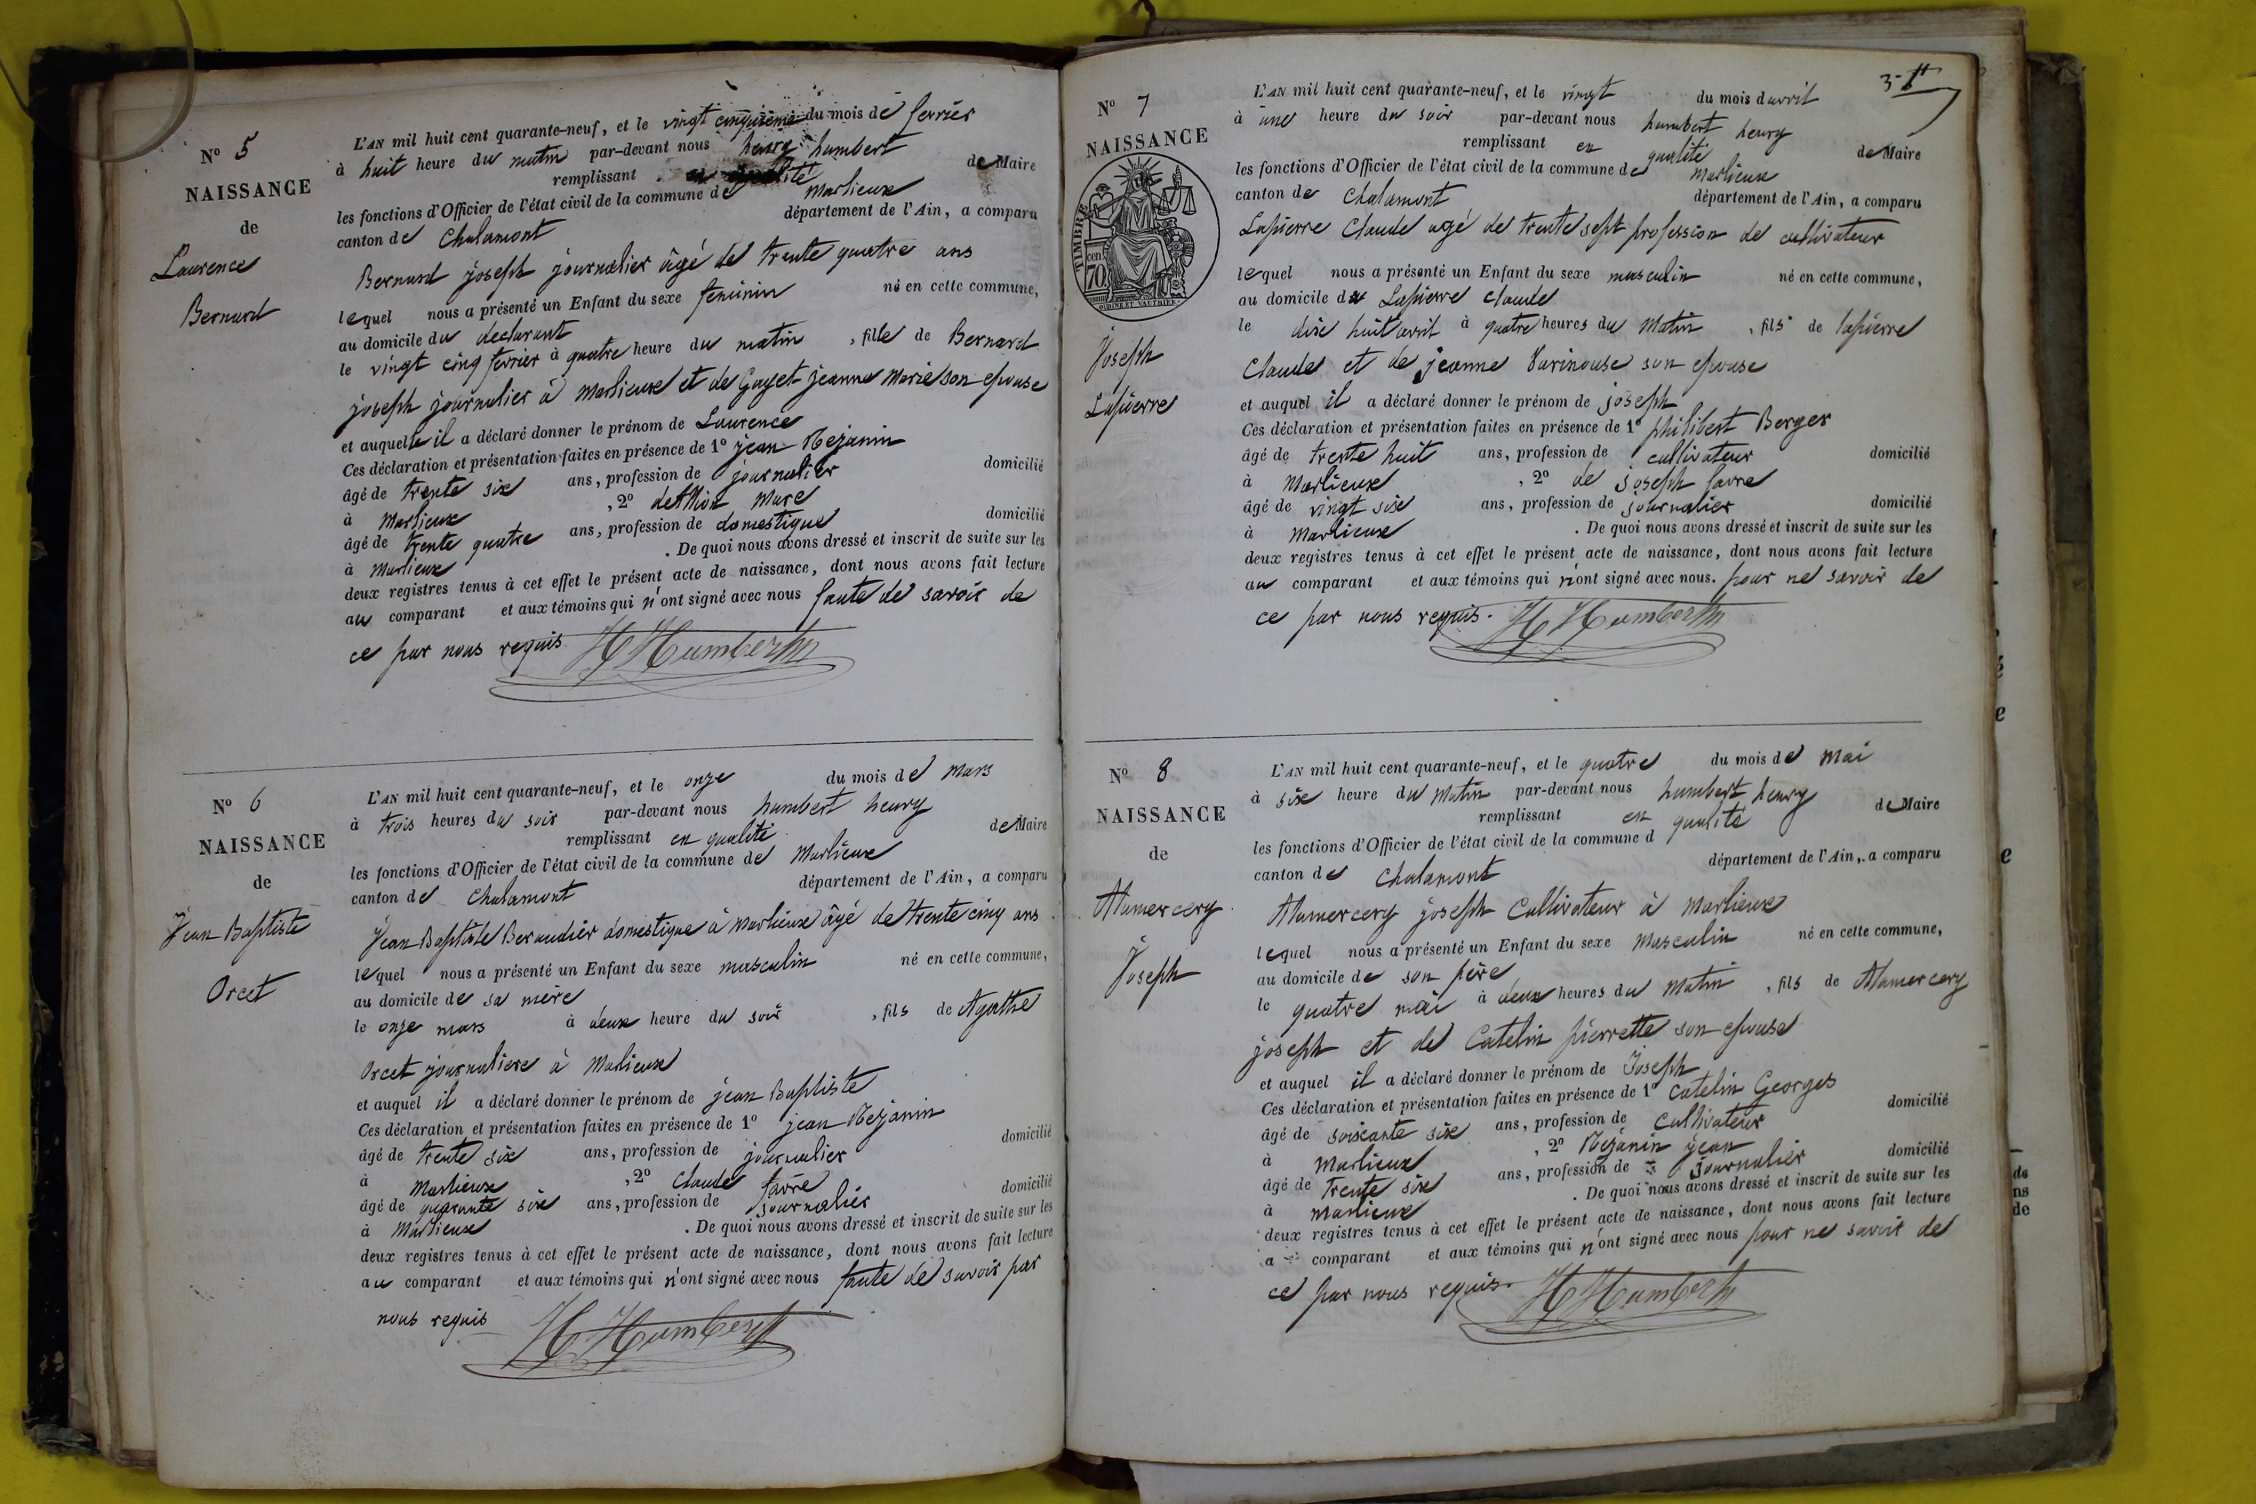 N° 5
NAISSANCE
de
Laurence
Bernard
L'AN mil huit cent quarante-neuf, et le vingt cinquieme du mois de fevrier
à huit heure du matin par-devant nous henry humbert
remplissant en qualité de Maire
les fonctions d'Officier de l'état civil de la commune de Marlieux
canton de Chalamont département de l'Ain, a comparu
Bernard joseph journalier âgé de trente quatre ans
lequel nous a présenté un Enfant du sexe feminin né en cette commune,
au domicile du declarant
le vingt cinq fevrier à quatre heure du matin, fille de Bernard
joseph journalier à Marlieux et de Gayet jeanne Marie son epouse
et auquelle il a déclaré donner le prénom de Laurence
Ces déclaration et présentation faites en présence de 1° jean Mejanin
âgé de trente six ans, profession de journalier domicilié
à Marlieux, 2° dethion Marc
âgé de trente quatre ans, profession de domestique domicilié
à Marlieux. De quoi nous avons dressé et inscrit de suite sur les
deux registres tenus à cet effet le présent acte de naissance, dont nous avons fait lecture
au comparant et aux témoins qui n'ont signé avec nous faute de savoir de
ce par nous requis. H Humbert
N° 6
NAISSANCE
de
Jean Baptiste
Orcet
L'AN mil huit cent quarante-neuf, et le onze du mois de Mars
à trois heures du soir par-devant nous humbert henry
remplissant en qualité de Maire
les fonctions d'Officier de l'état civil de la commune de Marlieux
canton de Chalamont département de l'Ain, a comparu
Jean Baptiste Beraudier domestique à Marlieux âgé de trente cinq ans
lequel nous a présenté un Enfant du sexe masculin né en cette commune,
au domicile de sa mère
le onze mars à deux heure du soir, fils de Agathe
Orcet journaliere à Marlieux
et auquel il a déclaré donner le prénom de jean Baptiste
Ces déclaration et présentation faites en présence de 1° jean Mejanin
âgé de trente six ans, profession de journalier domicilié
à Marlieux, 2° Claude favre
âgé de quarante six ans, profession de journalier domicilié
à Marlieux. De quoi nous avons dressé et inscrit de suite sur les
deux registres tenus à cet effet le présent acte de naissance, dont nous avons fait lecture
au comparant et aux témoins qui n'ont signé avec nous faute de savoir par
nous requis H Humbert
3
N° 7
NAISSANCE
TIMBRE
cen 70
OUDINE ET VAUTHIER
Joseph
Lapierre
L'AN mil huit cent quarante-neuf, et le vingt du mois d'avril
à une heure du soir par-devant nous humbert henry
remplissant en qualité de Maire
les fonctions d'Officier de l'état civil de la commune de Marlieux
canton de Chalamont département de l'Ain, a comparu
Lapierre Claude agé de trente sept profession de cultivateur
lequel nous a présenté un Enfant du sexe masculin né en cette commune,
au domicile de Lapierre claude
le dix huit avril à quatre heures du Matin, fils de lapierre
Claude et de jeanne Varinouse son epouse
et auquel il a déclaré donner le prénom de joseph
Ces déclaration et présentation faites en présence de 1° philibert Berger
âgé de trente huit ans, profession de cultivateur domicilié
à Marlieux, 2° de joseph favre
âgé de vingt six ans, profession de journalier domicilié
à Marlieux. De quoi nous avons dressé et inscrit de suite sur les
deux registres tenus à cet effet le présent acte de naissance, dont nous avons fait lecture
au comparant et aux témoins qui n'ont signé avec nous. pour ne savoir de
ce par nous requis. H Humbert
N° 8
NAISSANCE
de
Alamercery
Joseph
L'AN mil huit cent quarante-neuf, et le quatre du mois de Mai
à six heure du Matin par-devant nous humbert henry
remplissant en qualité de Maire
les fonctions d'Officier de l'état civil de la commune d
canton de Chalamont département de l'Ain, a comparu
Alamercery joseph Cultivateur à Marlieux
lequel nous a présenté un Enfant du sexe Masculin né en cette commune,
au domicile de son père
le quatre mai à deux heures du Matin, fils de Alamercery
joseph et de Catelin pierrette son epouse
et auquel il a déclaré donner le prénom de Joseph
Ces déclaration et présentation faites en présence de 1° Catelin Georges
âgé de soixante six ans, profession de Cultivateur domicilié
à Marlieux, 2° Mejanin jean
âgé de trente six ans, profession de journalier domicilié
à Marlieux. De quoi nous avons dressé et inscrit de suite sur les
deux registres tenus à cet effet le présent acte de naissance, dont nous avons fait lecture
a comparant et aux témoins qui n'ont signé avec nous pour ne savoir de
ce par nous requis. H Humbert